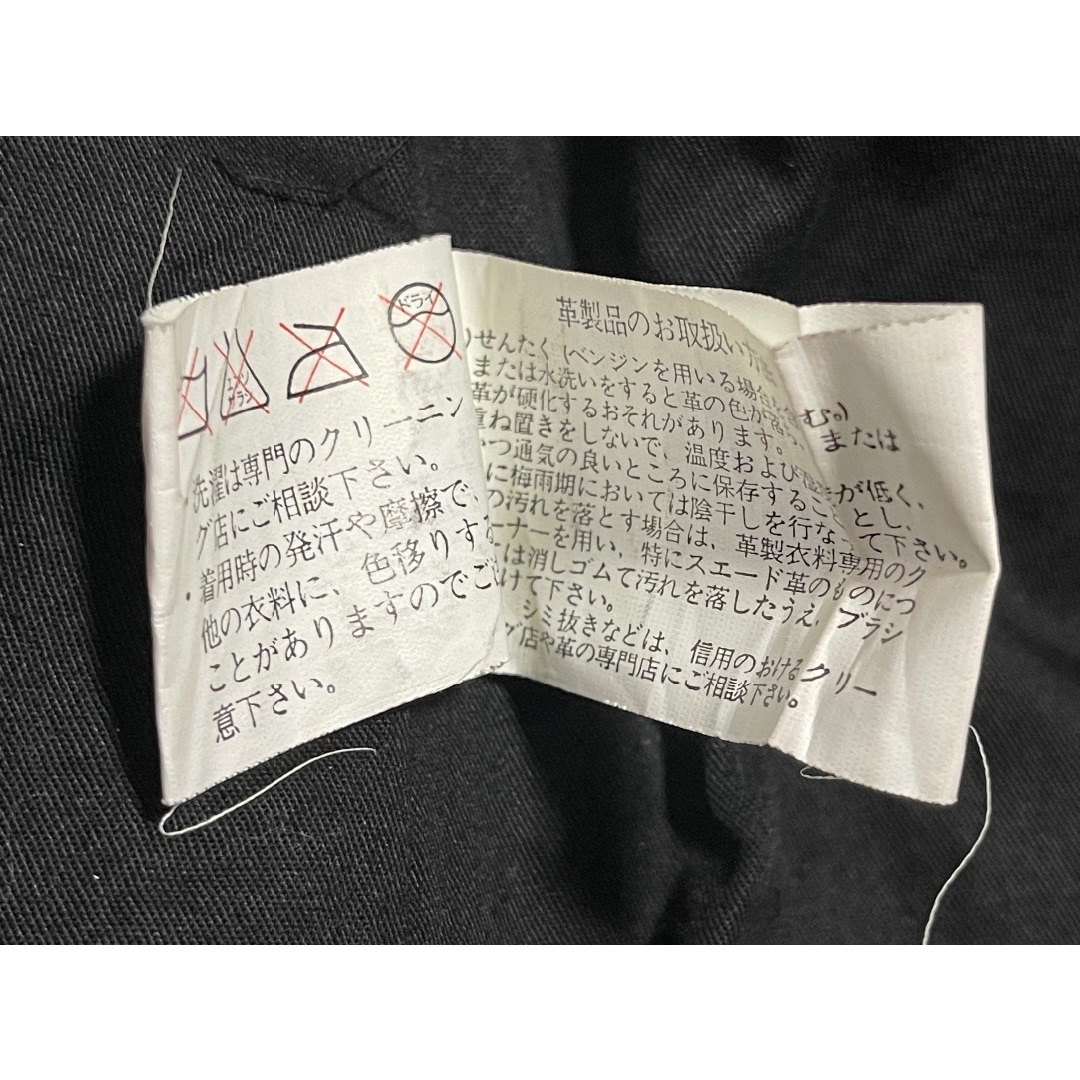 ドライ
エンソ
サラシ
洗濯は専門のクリーニン
グ店にご相談下さい。
・着用時の発汗や摩擦で、
他の衣料に、色移りする
ことがありますのでご
意下さい。
革製品のお取扱い方法
せんたく(ベンジンを用いる場合も含む。)
または水洗いをすると革の色が落ち、または
革が硬化するおそれがあります。
重ね置きをしないで、温度および湿度が低く、
つ通気の良いところに保存することとし、
に梅雨期においては陰干しを行なって下さい。
の汚れを落とす場合は、革製衣料専用のク
ーナーを用い、特にスエード革のものにつ
は消しゴムで汚れを落したうえ、ブラシ
けて下さい。
シミ抜きなどは、信用のおけるクリー
グ店や革の専門店にご相談下さい。